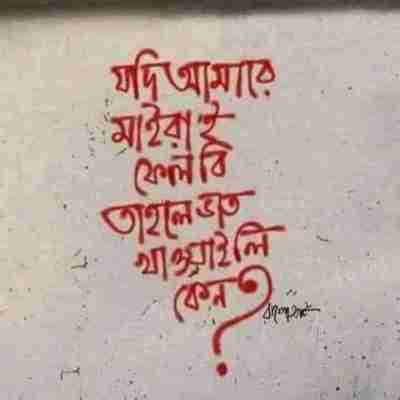 যদি আমারে
মাইরাই
ফেলবি
তাহলে ভাত
খাওয়াইলি
কেন?